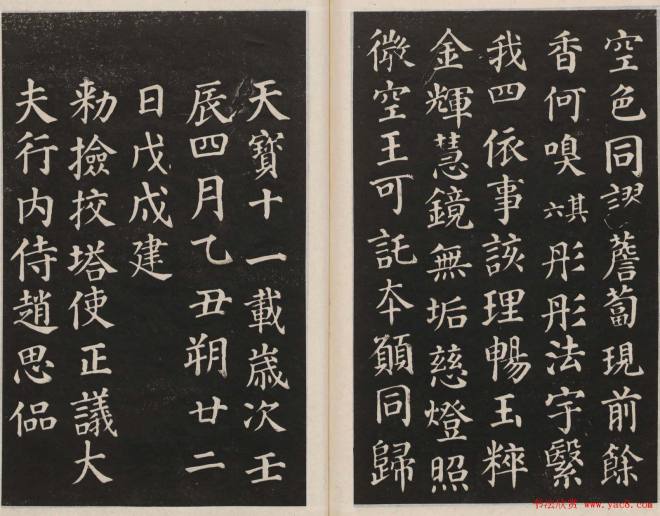 空色同謬薝蔔現前餘
香何嗅其六彤彤法宇繄
我四依事該理暢玉粹
金輝慧鏡無垢慈燈照
微空王可託本願同歸
天寶十一載歲次壬
辰四月乙丑朔廿二
日戊戌建
勑撿挍塔使正議大
夫行內侍趙思偘
书法欣赏 www.yac8.com